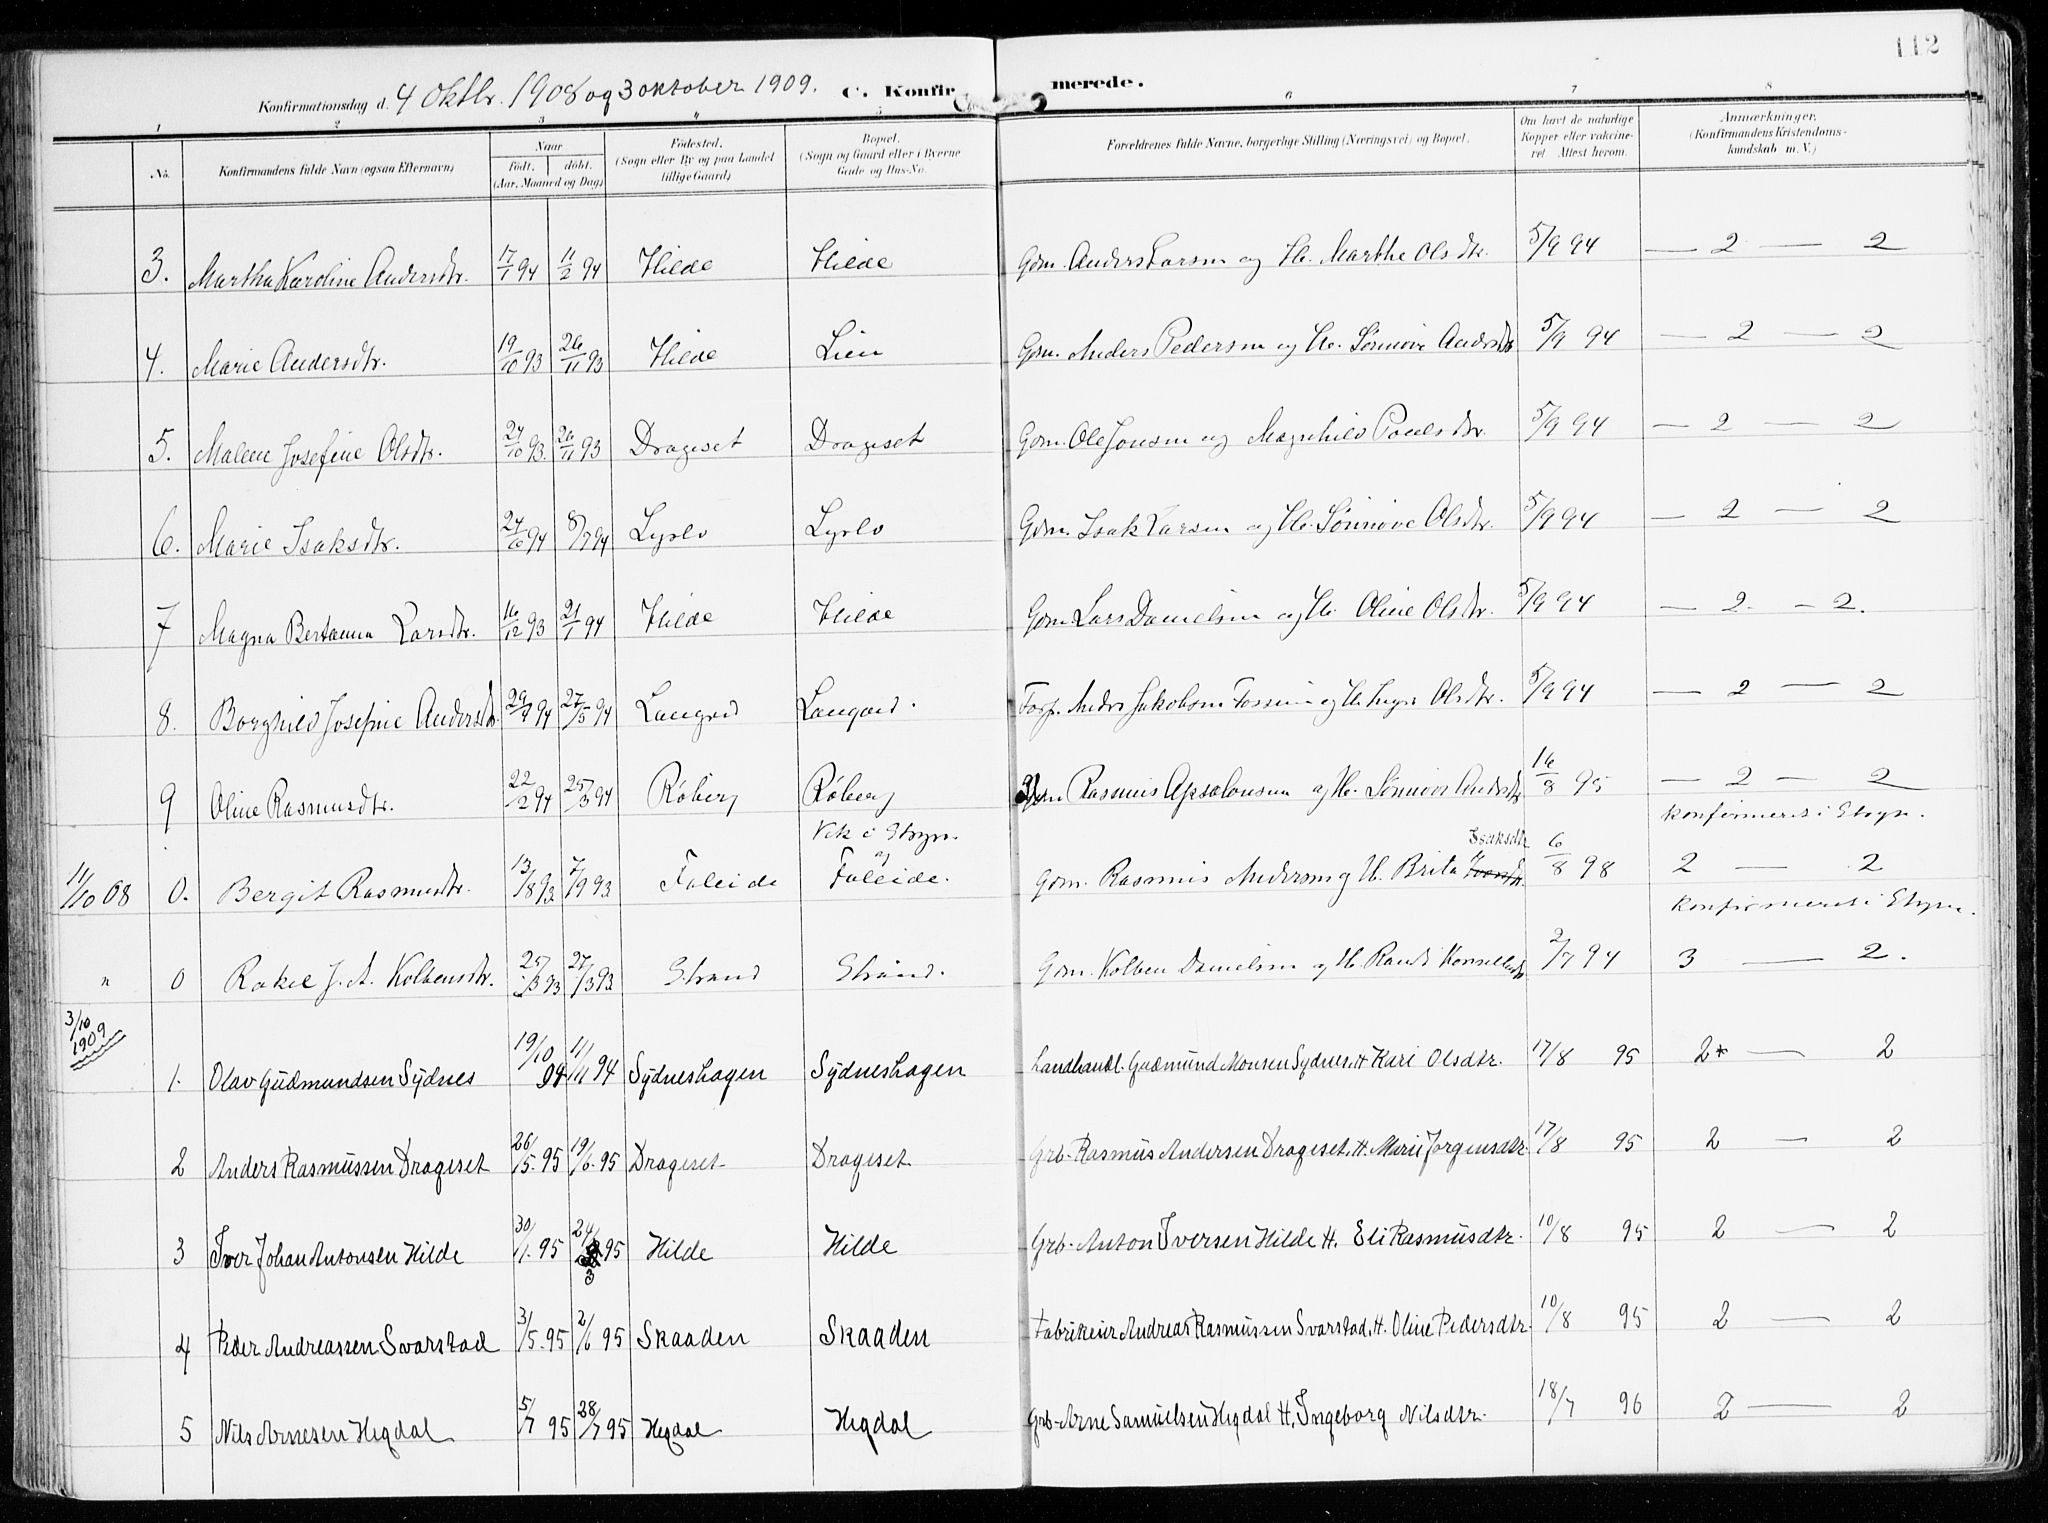 112
Konfirmationsdag d. 4 Oktbr. 1908 og 3 oktober 1909. C. Konfirmerede.
1 2 3 4 5 6 7 8
No. Konfirmandens fulde Navn (ogsaa Efternavn) Naar Födt. döbt. (Aar, Maaned og Dag) Födested. (Sogn eller By og paa Landet tillige Gaard) Bopæl. (Sogn og Gaard eller i Byerne Gade og Hus-No. Forældrenes fulde Navne, borgerlige Stilling (Næringsvei) og Bopæl. Om havt de naturlige Kopper eller vakcineret. Attest herom. Anmærkninger. (Konfirmandens Kristendomskundskab m. V.)
3. Martha Karoline Andersdtr. 17/1 94 11/2 94 Hilde Hilde Gdm. Anders Larsen og H. Marthe Olsdtr. 5/9 94 — 2 — 2
4. Marie Andersdtr. 19/10 93 26/11 93 Hilde Lien Gdm. Anders Pedersen og H. Sönnöve Andersdtr 5/9 94 — 2 — 2
5. Malene Josefine Olsdtr. 27/10 93. 26/11 93 Drageset Drageset Gdm. Ole Jonsen og Magnhild Paulsdtr. 5/9 94 — 2 — 2
6. Marie Isaksdtr. 24/6 94 8/7 94 Lyslo Lyslo Gdm. Isak Larsen og H. Sönnöve Olsdtr. 5/9 94 — 2 — 2
7 Magna Bertanna Larsdtr. 16/12 93 21/1 94 Hilde Hilde Gdm. Lars Danielsen og H. Oline Olsdtr. 5/9 94 — 2. — 2.
8. Borghild Josefine Andersdtr. 29/4 94 27/5 94 Langvd Langvd. Anders Jakobsen og H. Olsdtr. 5/9 94 — 2 — 2
9 Oline Rasmusdtr. 22/2 94 25/3 94 Röberg Röberg Gdm Rasmus Apsalonsen og H. Sönnöve Andersdtr 16/8 95 — 2 — 2
Vik i Stryn. konfirmeret i Stryn.
11/10 08 0. Bergit Rasmusdtr. 13/8 93 7/9 93 Faleide og Faleide. Gdm. Rasmus Andersen og H. Brita Isaksdtr 6/8 98 2 — 2
Konfirmeret i Stryn.
" 0 Rakel J. A. Kolbensdtr. 25/3 93 27/3 93 Strand Strand. Gdm. Kolben Danielsen og H. Rande 2/7 94 3 — 2.
3/10 1909
1. Olav Gudmundsen Sydnes 19/10 94 11/11 94 Sydneshagen Sydneshagen Landhandl. Gudmund Monsen Sydnes, H Kari Olsdtr. 17/8 95 2* — 2
2 Anders Rasmussen Drageset 26/5. 95 19/6. 95 Drageset Drageset Grb. Rasmus Andersen Drageset, H. Marie Jörgensdtr. 17/8 95 2 — 2
3 Iver Johan Antonsen Hilde 30/1. 95 24/3 95 Hilde Hilde Grb. Anton Iversen Hilde H. Eli Rasmusdtr. 10/8 95 2 — 2
4 Peder Andreassen Svarstad 31/5. 95 2/6 95 Skaaden Skaaden Fabrikeier Andreas Rasmussen Svarstad, H. Oline Pedersdtr. 10/8 95 2 — 2
5 Nils Arnesen Hegdal 5/7 95 28/7 95 Hegdal Hegdal Grb. Arne Samuelsen Hegdal H. Ingeborg Nilsdtr. 18/7 96 2 — 2